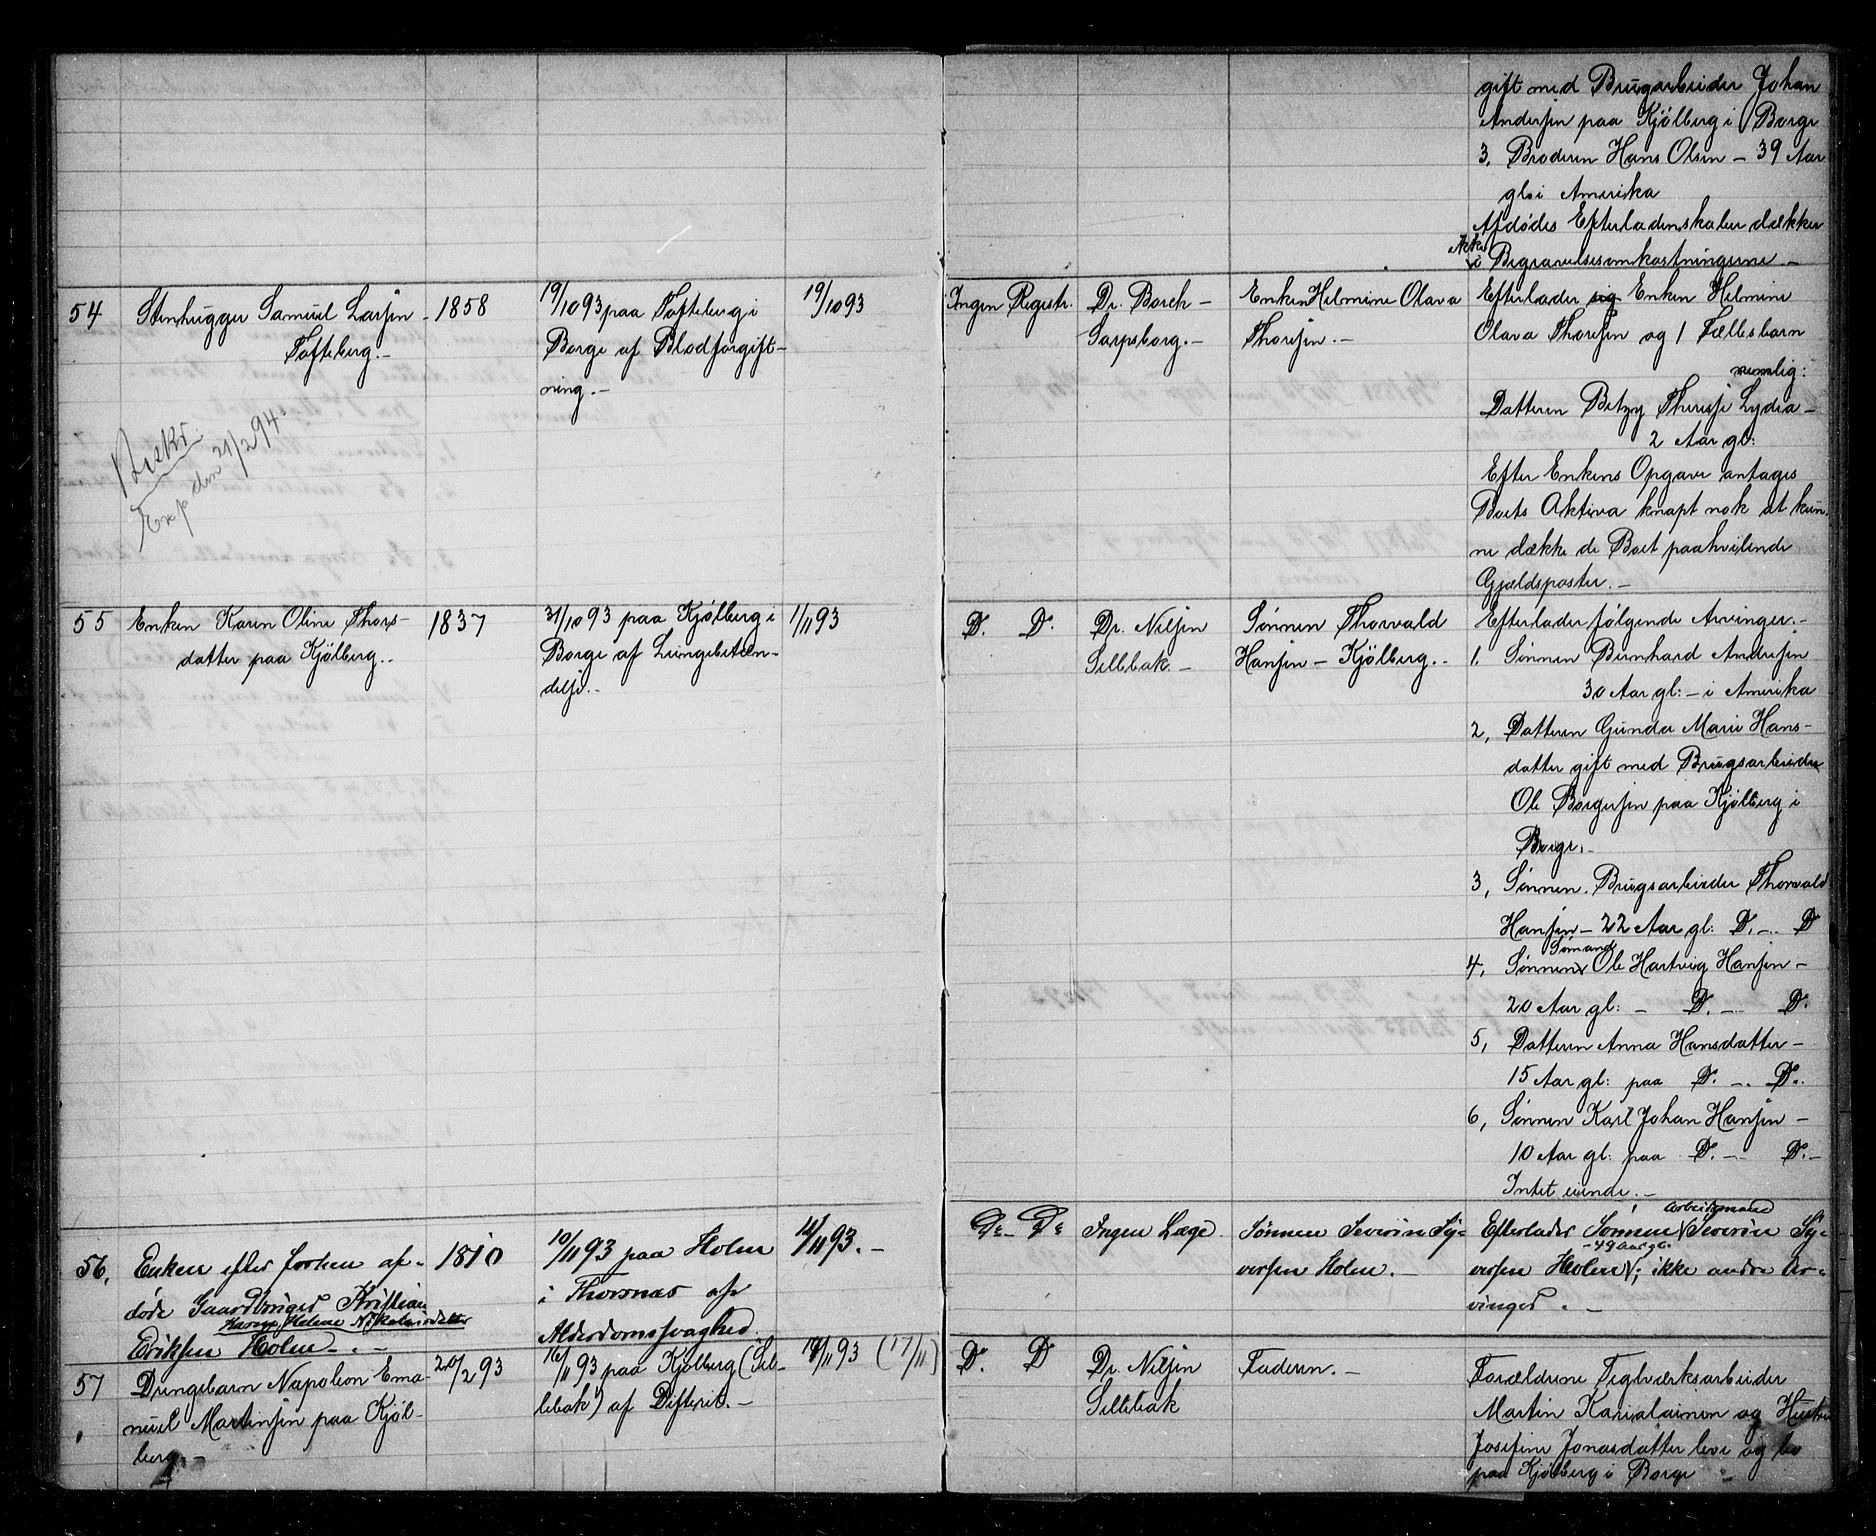 gift med Brugsarbeider Johan
Andersen paa Kjølberg i Borge
3. Broderen Hans Olsen – 39 Aar
gl: i Amerika
Afdødes Efterladenskaber dækker
ikke
Begravelsesomkostningerne –
54 Stenhugger Samuel Larsen – 1858 19/10 93 paa Tofteberg i 19/10 93 Ingen Registr. Dr. Borch – Enken Helmine Olava Efterlader sig Enken Helmine
Tofteberg. – Borge af Blodforgift– Sarpsborg. – Thoresen. – Olava Thoresen og 1 Fællesbarn
ning. – nemlig:
Datteren Betzy Therese Lydia –
2 Aar gl:
Exp den 21/2 94
Efter Enkens Opgave antages
Boets Aktiva knapt nok at kun–
ne dække de Boet paahvilende
Gjældsposter. –
55 Enken Karen Oline Thors– 1837 31/10 93 paa Kjølberg i 1/11 93 D. D. Dr. Nilsen Sønnen Thorvald Efterlader følgende Arvinger. –
datter paa Kjølberg. – Borge af Lungebetæn– Sellebak – Hansen – Kjølberg. – 1. Sønnen Bernhard Andresen
delse. – 30 Aar gl: – i Amerika
2, Datteren Gunda Marie Hans–
datter gift med Brugsarbeider
Ole Borgersen paa Kjølberg i
Borge. –
3, Sønnen. Brugsarbeider Thorvald
Hansen – 22 Aar gl: D. – D
Sømand
4, Sønnen Ole Hartvig Hansen –
20 Aar gl: – D. – D.
5, Datteren Anna Hansdatter –
15 Aar gl: paa D. – D.
6, Sønnen Karl Johan Hansen –
10 Aar gl: paa D. – D. –
Intet eiende. –
arbeidsmand
56, Enken efter forhen af– 1810 10/11 93 paa Holm 14/11 93. – Do – Do Ingen Læge. Sønnen Severin Sy– Efterlader Sønnen Severin Sy–
– 49 Aar gl.
døde Gaardbruger Kristian i Thorsnæs af versen Holm. – versen Holm; ikke andre Ar–
Helene Nikolaisdatter
Eriksen Holm – . – Alderdomssvaghed. vinger. –
57 Drengebarn Napoleon Ema– 20/2 93 16/11 93 paa Kjølberg (Sel– 17/11 93 (17/11) D. D Dr. Nilsen Faderen. – Forældrene Teglværksarbeider
nuel Martinsen paa Kjøl– lebak) af Difterit. – Sellebak Martin Karialainen og Hustru
berg – Josefine Jonasdatter leve og bo
paa Kjølberg i Borge –